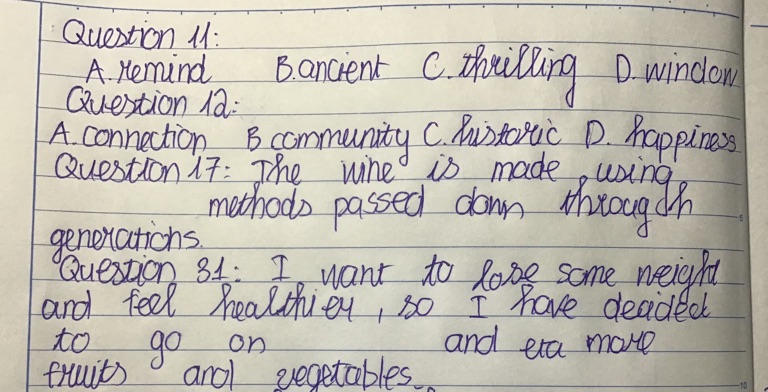 Question 11:
A. remind B. ancient C. thrilling D. window
Question 12:
A. connection B community C. historic D. happiness
Question 17: The wine is made using
methods passed down througdh
generations.
Question 31: I want to lose some weight
and feel healthier, so I have decided
to go on and eta more
fruits and vegetables.